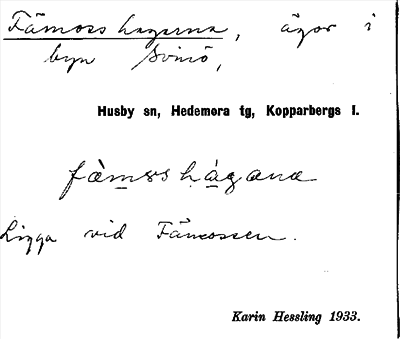 Fämosshagarna, ägor i
byn Svinö,
Husby sn, Hedemora tg, Kopparbergs l.
fä̀mơshágana
Ligga vid Fämossen.
Karin Hessling 1933.